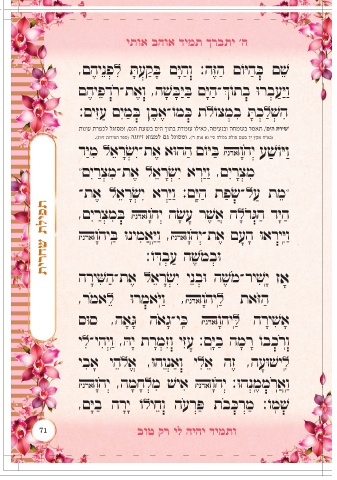 ה' יתברך תמיד אוהב אותי
שֵׁם כְּהַיּוֹם הַזֶּה: וְהַיָּם בָּקַעְתָּ לִפְנֵיהֶם,
וַיַּעַבְרוּ בְתוֹךְ־הַיָּם בַּיַּבָּשָׁה, וְאֶת־רֹדְפֵיהֶם
הִשְׁלַכְתָּ בִמְצוֹלֹת כְּמוֹ־אֶבֶן בְּמַיִם עַזִּים:
וַיּוֹשַׁע יְהֹוָה בַּיּוֹם הַהוּא אֶת־יִשְׂרָאֵל מִיַּד
מִצְרָיִם, וַיַּרְא יִשְׂרָאֵל אֶת־מִצְרַיִם
מֵת עַל־שְׂפַת הַיָּם: וַיַּרְא יִשְׂרָאֵל אֶת־
הַיָּד הַגְּדֹלָה אֲשֶׁר עָשָׂה יְהֹוָה בְּמִצְרַיִם,
וַיִּירְאוּ הָעָם אֶת־יְהֹוָה, וַיַּאֲמִינוּ בַּיהֹוָה
וּבְמֹשֶׁה עַבְדּוֹ:
אָז יָשִׁיר־מֹשֶׁה וּבְנֵי יִשְׂרָאֵל אֶת־הַשִּׁירָה
הַזֹּאת לַיהֹוָה, וַיֹּאמְרוּ לֵאמֹר,
אָשִׁירָה לַיהֹוָה כִּי־גָאֹה גָּאָה, סוּס
וְרֹכְבוֹ רָמָה בַיָּם: עָזִּי וְזִמְרָת יָהּ, וַיְהִי־לִי
לִישׁוּעָה, זֶה אֵלִי וְאַנְוֵהוּ, אֱלֹהֵי אָבִי
וַאֲרֹמְמֶנְהוּ: יְהֹוָה אִישׁ מִלְחָמָה, יְהֹוָה
שְׁמוֹ: מַרְכְּבֹת פַּרְעֹה וְחֵילוֹ יָרָה בַיָּם,
תפילת שחרית
ותמיד יהיה לי רק טוב
71